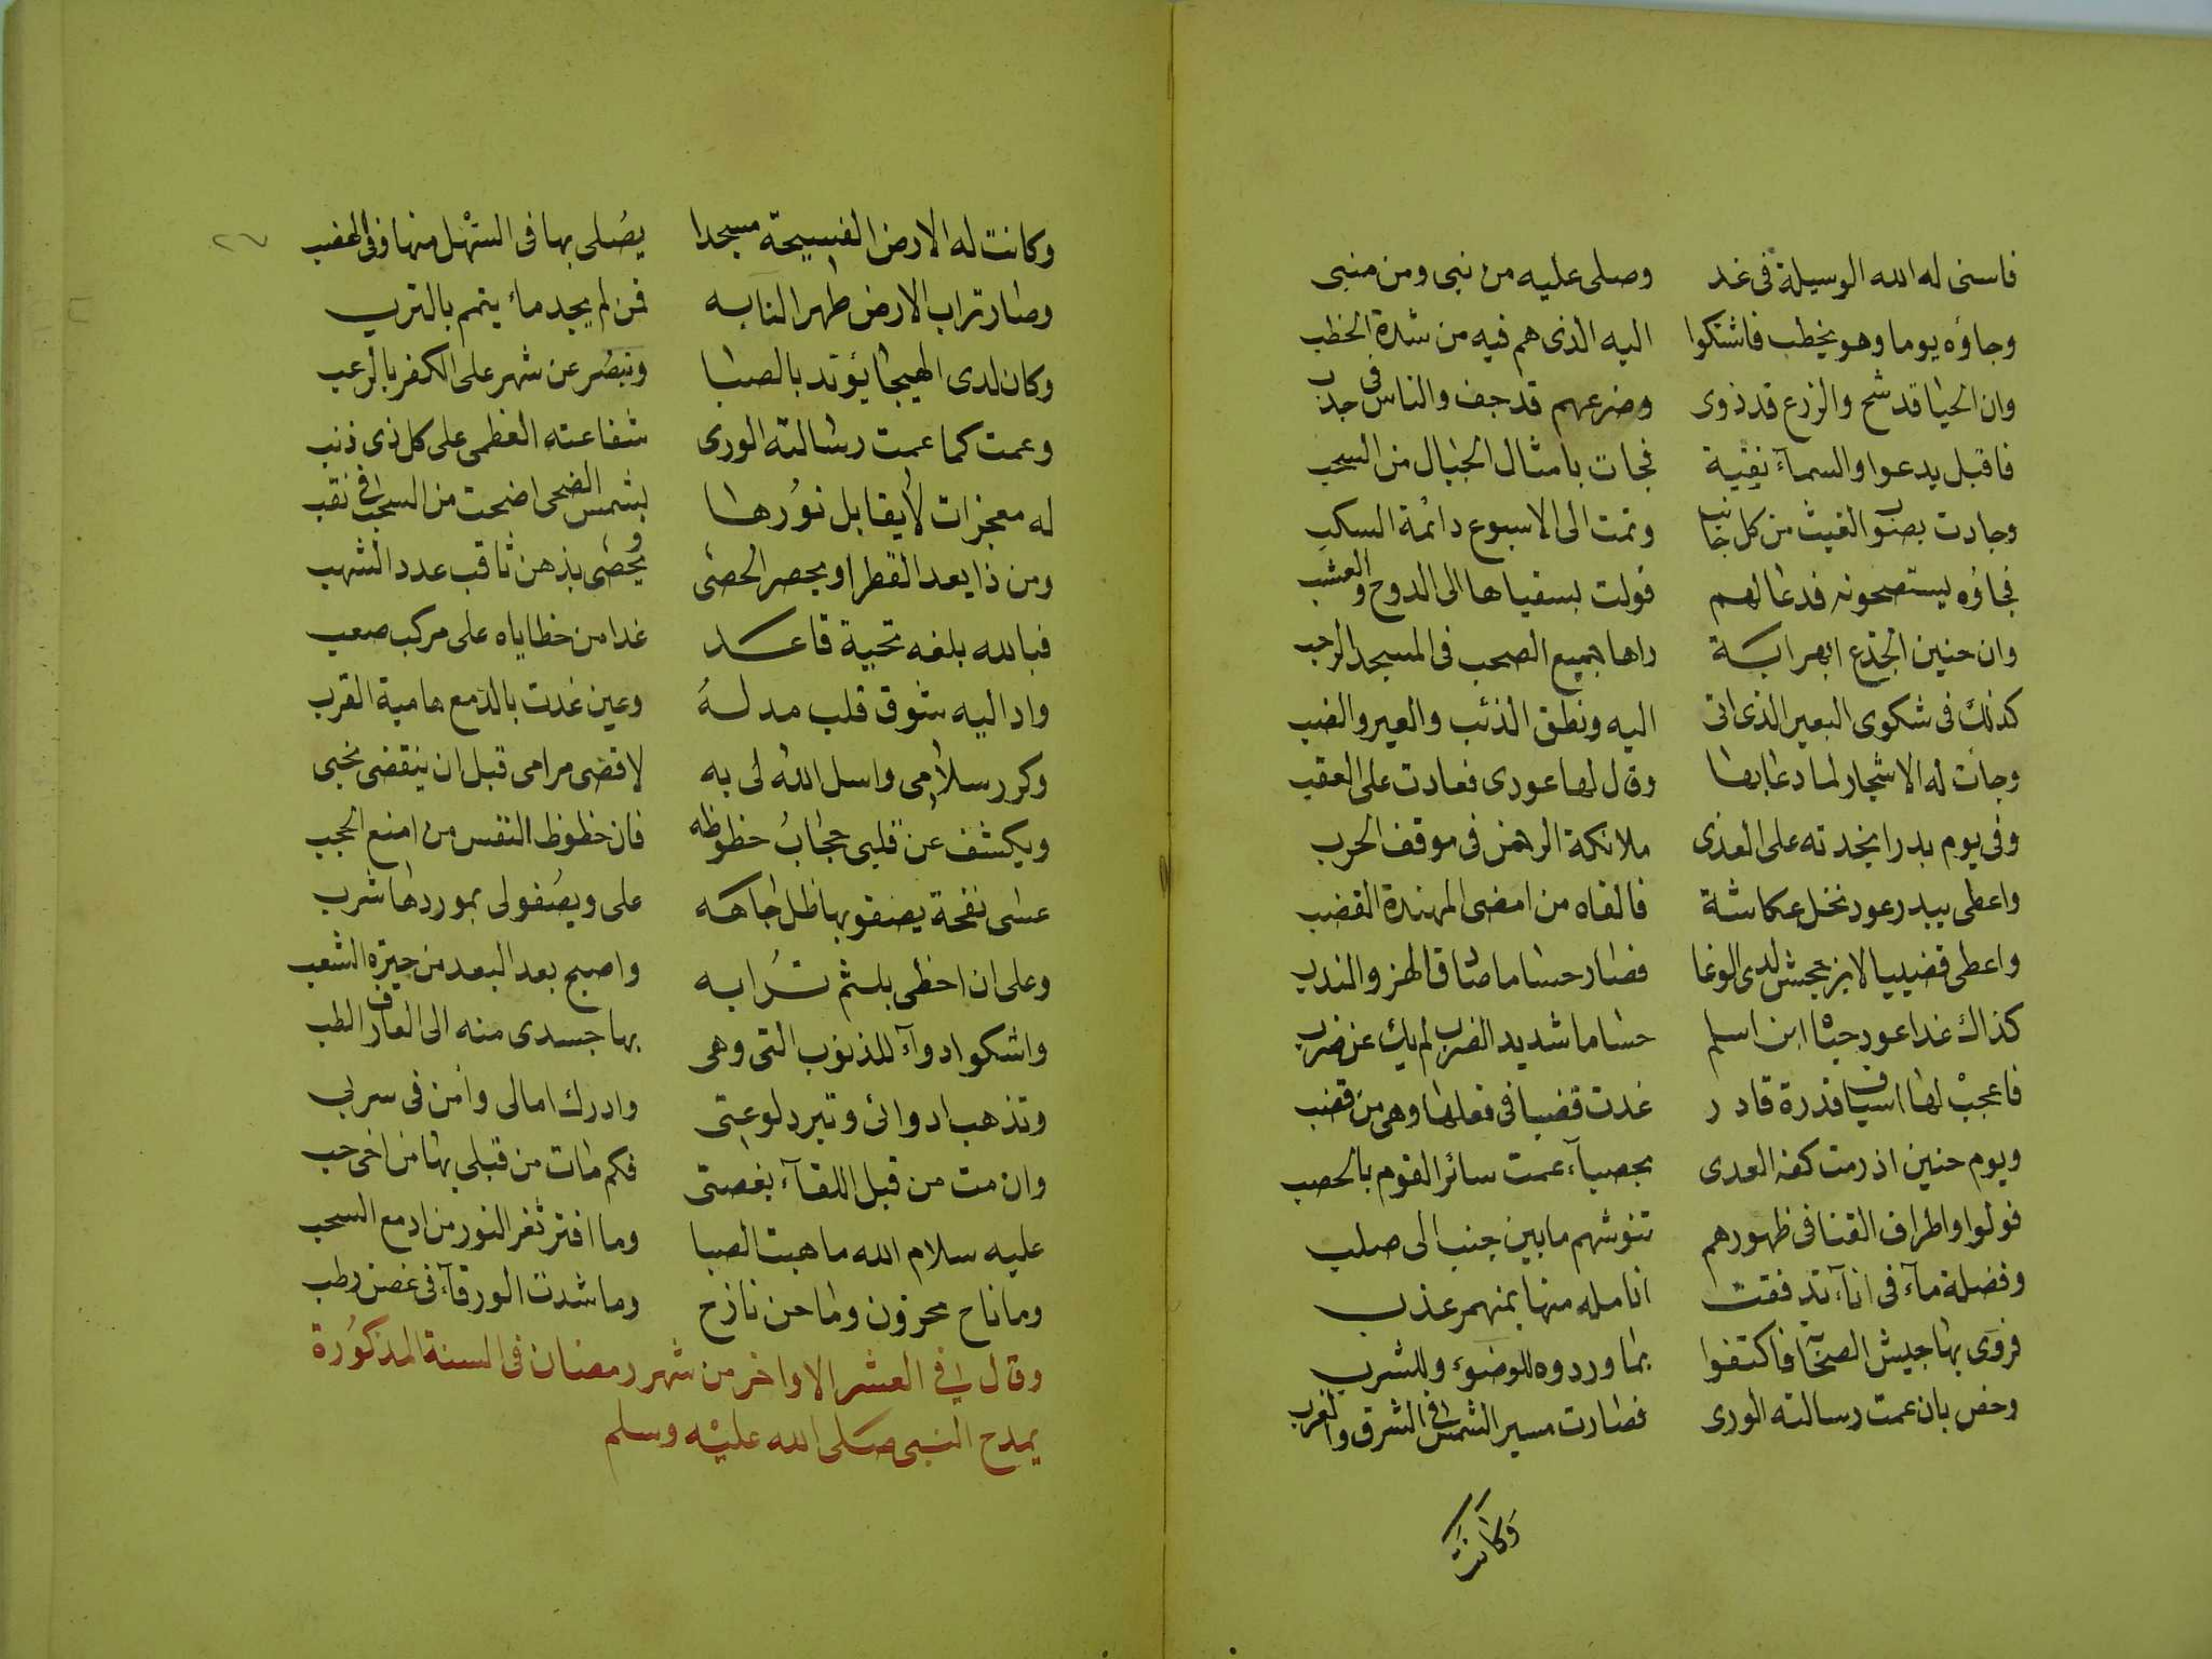 فاسنى له الله الوسيلة فى غد وصلى عليه من نبى ومن منبى
وجاؤه يوما وهو يخطب فاشتكوا اليه الذى هم فيه من شدة الخطب
وان الحيا قد شح والزرع قد ذوى وضرعهم قد جف والناس فى جدب
فاقبل يدعوا والسمآء نقية فجات بامثال الجبال من السحب
وجادت بصوب الغيث من كل جانب وتمت الى الاسبوع دائمة السكب
فجاؤه يستصحونه فدعا لهم فولت بسقياها الى الدوح والعشب
وان حنين الجذع ابهر اية راها جميع الصحب فى المسجد الرحب
كذلك فى شكوى البعير الذى اتى اليه ونطق الذئب والعير والضب
وجات له الاشجار لما دعا بها وقال لها عودى فعادت على العقب
وفى يوم بدر انجدته على العدى ملائكة الرحمن فى موقف الحرب
واعطى ببدر عود نخل عكاشة فالفاه من امضى المهندة القضب
واعطى قضيبا لابن جحش لدى الوغا فصار حساما صادق الهز والندب
كذاك غدا عود حباه ابن اسلم حساما شديد الضرب لم يك عن ضرب
فاعجب لها اسياف قدرة قادر غدت قضبا فى فعلها وهى من قضب
ويوم حنين اذ رمت كفه العدى بحصبآء عمت سائر القوم بالحصب
فولوا واطراف القنا فى ظهورهم تنوشهم ما بين جنب الى صلب
وفضلة مآء فى انآء تدفقت انامله منها بمنهمر عذب
فروى بها جيش الصحابة فاكتفوا بما وردوه للوضوء وللشرب
وخص بان عمت رسالته الورى فصارت مسير الشمس فى الشرق والغرب
وكانت
٢٧
وكانت له الارض الفسيحة مسجدا يصلى بها فى السهل منها وفى الهضب
وصار تراب الارض طهرا لنا به فمن لم يجد ماء يتمم بالترب
وكان لدى الهيجا يؤيد بالصبا وينصر عن شهر على الكفر بالرعب
وعمت كما عمت رسالته الورى شفاعته العظمى على كل ذى ذنب
له معجزات لا يقابل نورها بشمس الضحى اضحت من السحب فى نقب
ومن ذا يعد القطر او يحصر الحصى ويحصى بذهن ثاقب عدد الشهب
فبالله بلغه تحية قاعد غدا من خطاياه على مركب صعب
واد اليه شوق قلب مدله وعين غدت بالدمع هامية الغرب
وكرر سلامى واسل الله لى به لاقضى مرامى قبل ان ينقضى نحبى
ويكشف عن قلبى حجاب حظوظه فان حظوظ النفس من امنع الحجب
عسى نفحة يصفو بها ظل جاهه على ويصفو لى بموردها شرب
وعلى ان احظى بلثم ترابه واصبح بعد البعد من جيرة الشعب
واشكو ادوآء للذنوب التى وهى بها جسدى منه الى العارف الطب
وتذهب ادوائى وتبرد لوعتى وادرك امالى وامن فى سربى
وان مت من قبل اللقآء بغصتى فكم مات من قبلى بها من اخى حب
عليه سلام الله ما هبت الصبا وما افتر ثغر النور من ادمع السحب
وما ناح محزون وما حن نازح وما شدت الورقآء فى غصن رطب
وقال فى العشر الاواخر من شهر رمضان فى السنة المذكورة
يمدح النبى صلى الله عليه وسلم